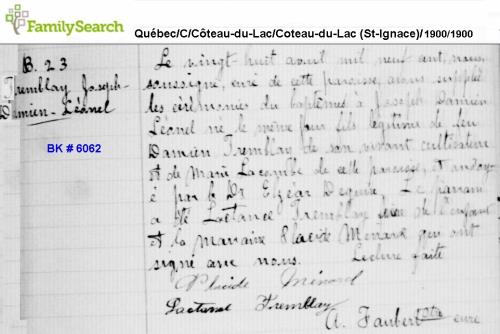 FamilySearch
Québec/C/Côteau-du-Lac/Coteau-du-Lac (St-Ignace)/1900/1900
B. 23
Tremblay Joseph-
Damien-Léonel
BK # 6062
Le vingt-huit avril mil neuf cent, nous,
soussigné, curé de cette paroisse, avons suppléé
les cérémonies du baptême à Joseph Damien
Léonel né le même jour fils légitime de feu
Damien Tremblay de son vivant cultivateur
et de Marie Lacombe de cette paroisse, et ondoy-
é par le Dr Elzéar Deguire. Le parrain
a été Lactance Tremblay de l'enfant
et la marraine Placide Ménard qui ont
signé avec nous. Lecture faite
Placide Ménard
Lactance Tremblay
A. Faubert Ptre curé